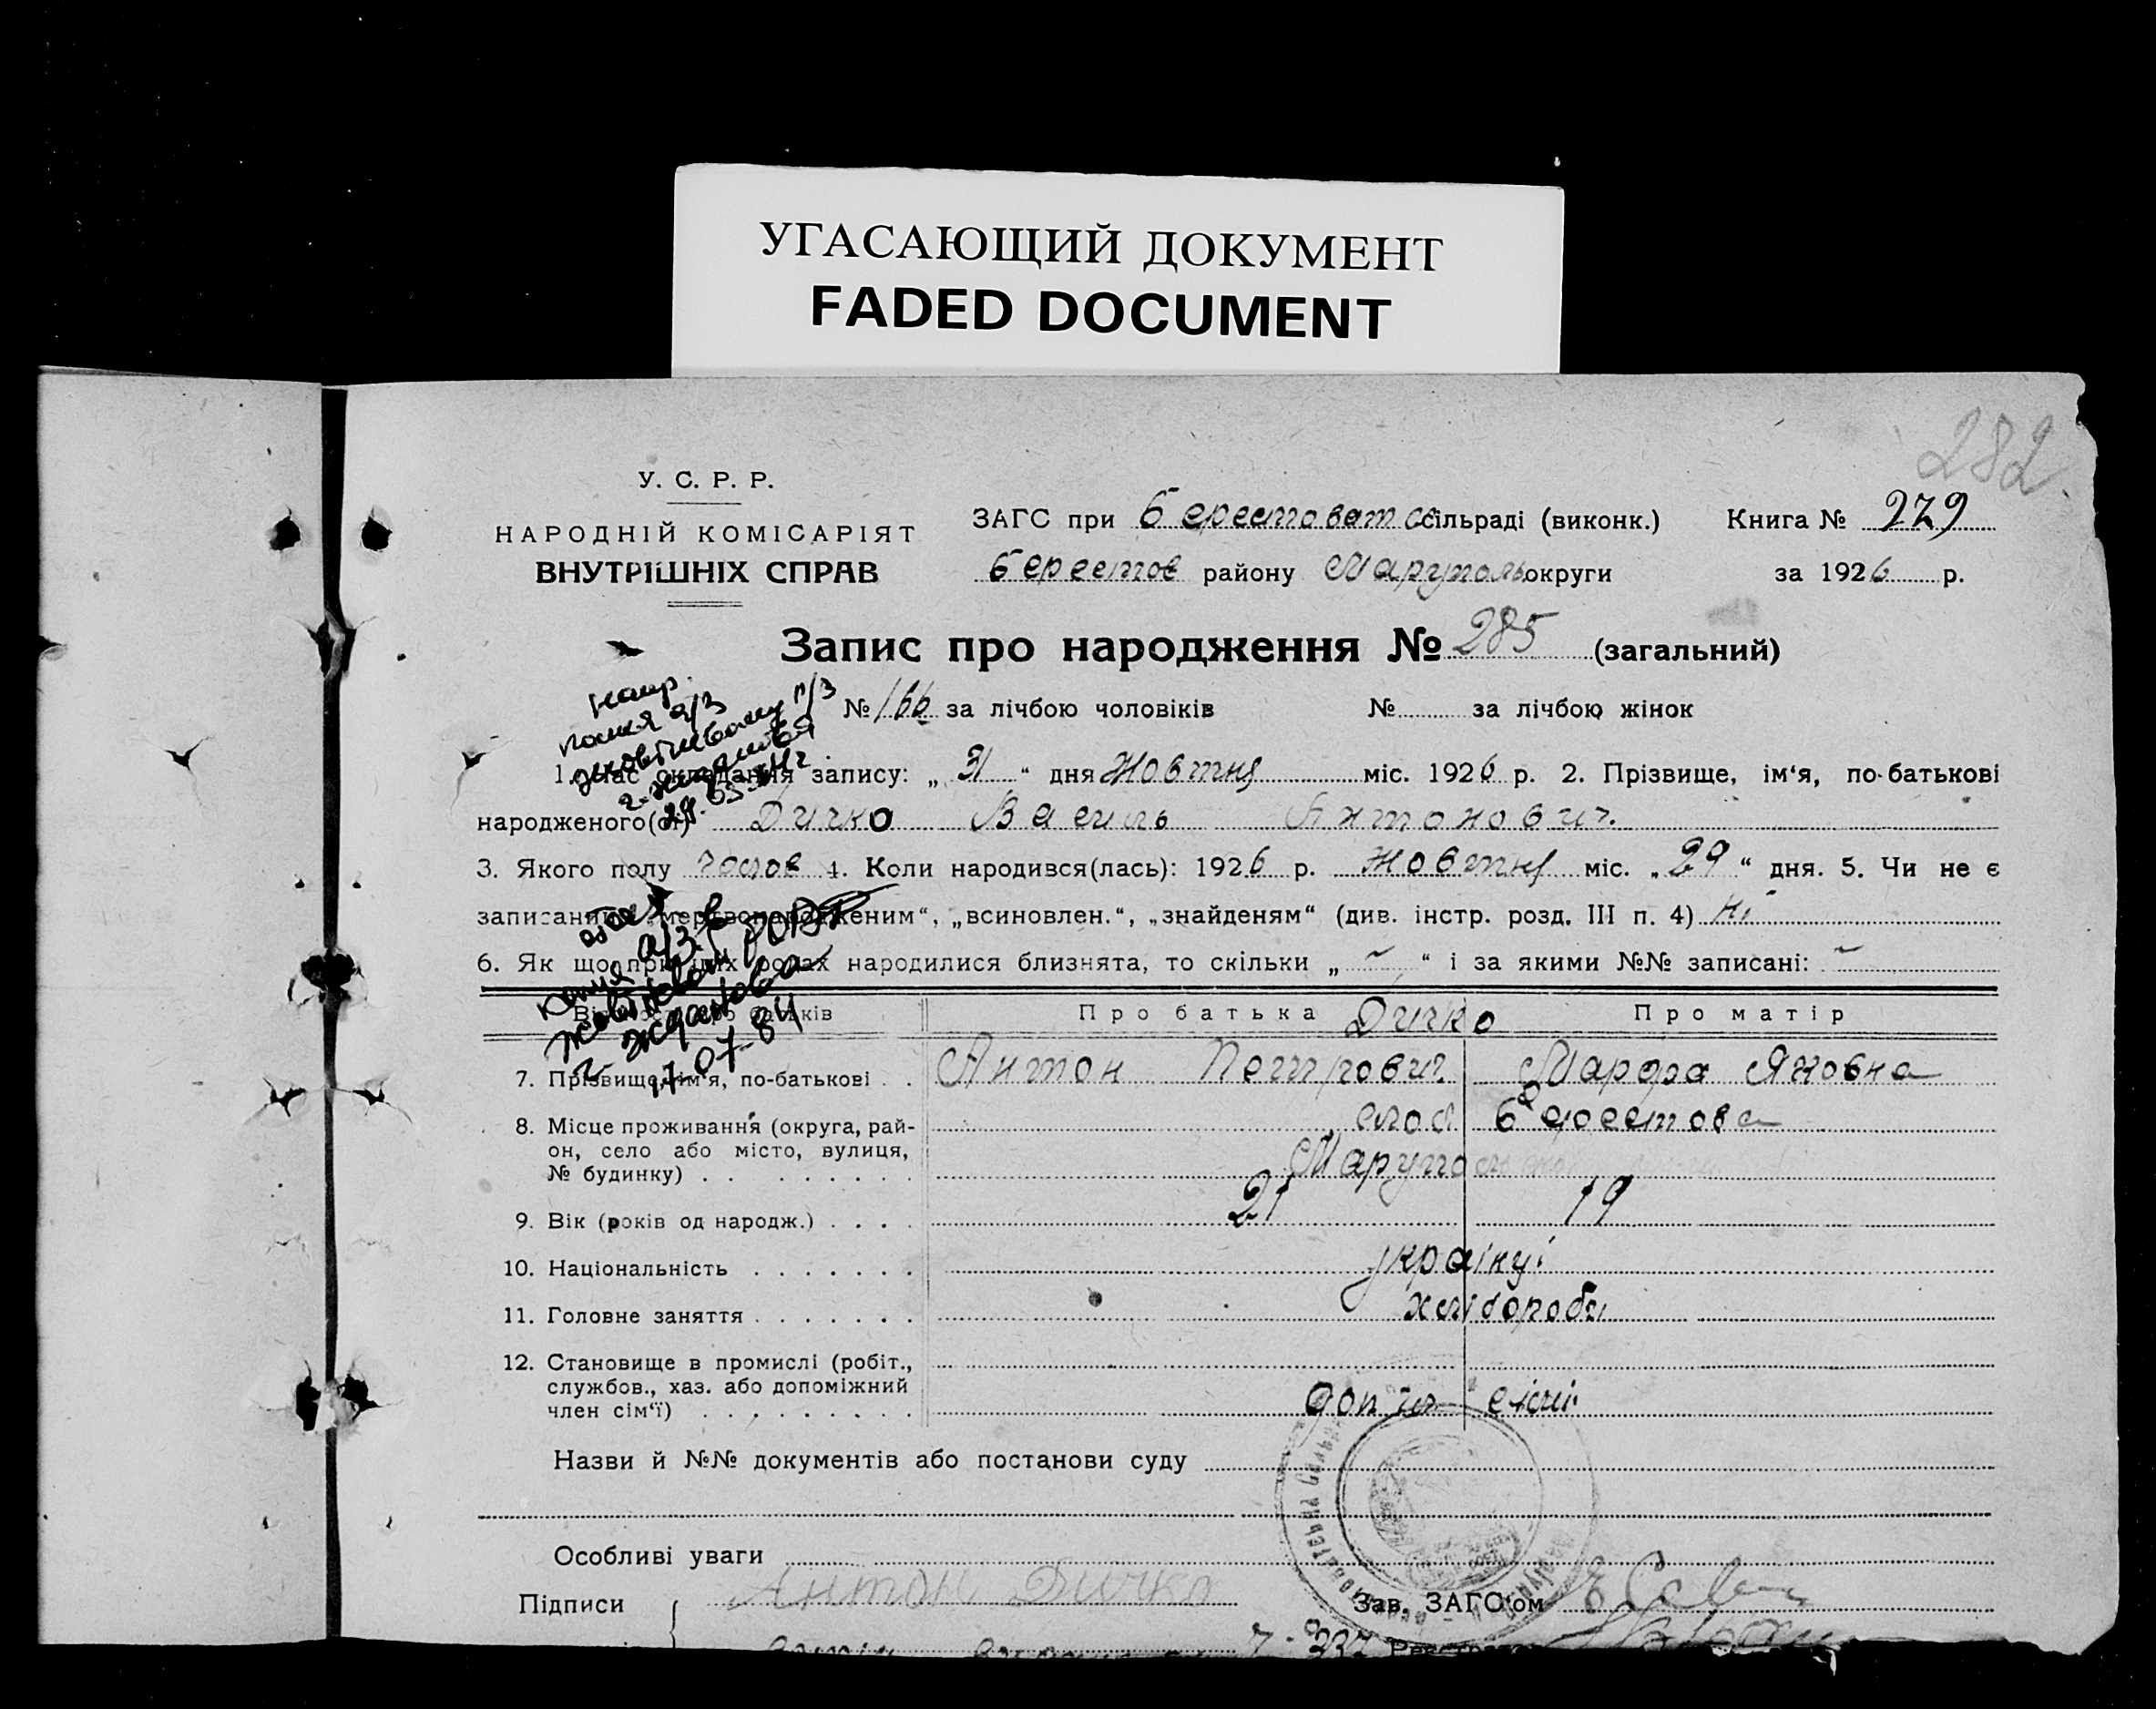 УГАСАЮЩИЙ ДОКУМЕНТ
FADED DOCUMENT
282.
У. С. Р. Р.
НАРОДНІЙ КОМІСАРІЯТ
ВНУТРІШНІХ СПРАВ
ЗАГС при Берестоват сільраді (виконк.) Книга № 279
Берестов району Маруполь округи за 1926 р.
Запис про народження № 285 (загальний)
№ 166 за лічбою чоловіків № за лічбою жінок
1. Час складання запису: „ 31 “ дня Жовтня міс. 1926 р. 2. Прізвище, ім‘я, по-батькові
народженого(ої) Дичко Василь Антонович.
3. Якого полу чолов 4. Коли народився(лась): 1926 р. жовтня міс. „ 29 “ дня. 5. Чи не є
записаним „мертвонародженим“, „всиновлен.“, „знайденям“ (див. інстр. розд. III п. 4) ні
6. Як що при цих родах народилися близнята, то скільки „ ~ “ і за якими №№ записані: ~
копия а/з
г. Жданова
17-07-84
Про батька Дичко Про матір
7. Прізвище, ім‘я, по-батькові . . Антон Петрович Марфа Яковна
8. Місце проживання (округа, рай-
он, село або місто, вулиця,
№ будинку) . . . . . . . . .
слоб Берестова
Марупо
9. Вік (років од народж.) . . . . 21 19
10. Національність . . . . . . . українці
11. Головне заняття . . . . . . . хлібороби
12. Становище в промислі (робіт.,
службов., хаз. або допоміжний
член сім‘ї) . . . . . . . . .
доп чл сімі
Назви й №№ документів або постанови суду
Особливі уваги
Підписи Антон Дичко Зав. ЗАГС‘ом